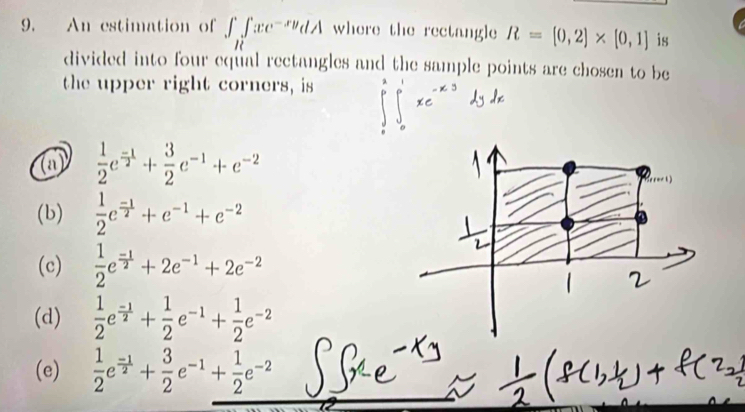 9. An estimation of ∫∫_R xe^{-xy}dA where the rectangle R = [0,2] × [0,1] is
divided into four equal rectangles and the sample points are chosen to be
the upper right corners, is
∫_0^2 ∫_0^1 xe^{-xy} dy dx
(a) \frac{1}{2}e^{\frac{-1}{2}} + \frac{3}{2}e^{-1} + e^{-2}
(b) \frac{1}{2}e^{\frac{-1}{2}} + e^{-1} + e^{-2}
(c) \frac{1}{2}e^{\frac{-1}{2}} + 2e^{-1} + 2e^{-2}
(d) \frac{1}{2}e^{\frac{-1}{2}} + \frac{1}{2}e^{-1} + \frac{1}{2}e^{-2}
(e) \frac{1}{2}e^{\frac{-1}{2}} + \frac{3}{2}e^{-1} + \frac{1}{2}e^{-2}
1
\frac{1}{2}
1 2
∫∫ xe^{-xy} ≈ \frac{1}{2}(f(1,\frac{1}{2}) + f(2,